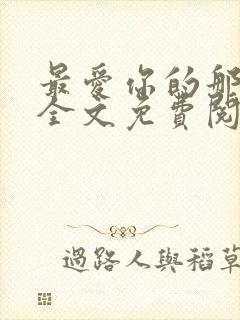 最愛你的那
全文免費閱
過路人與稻草